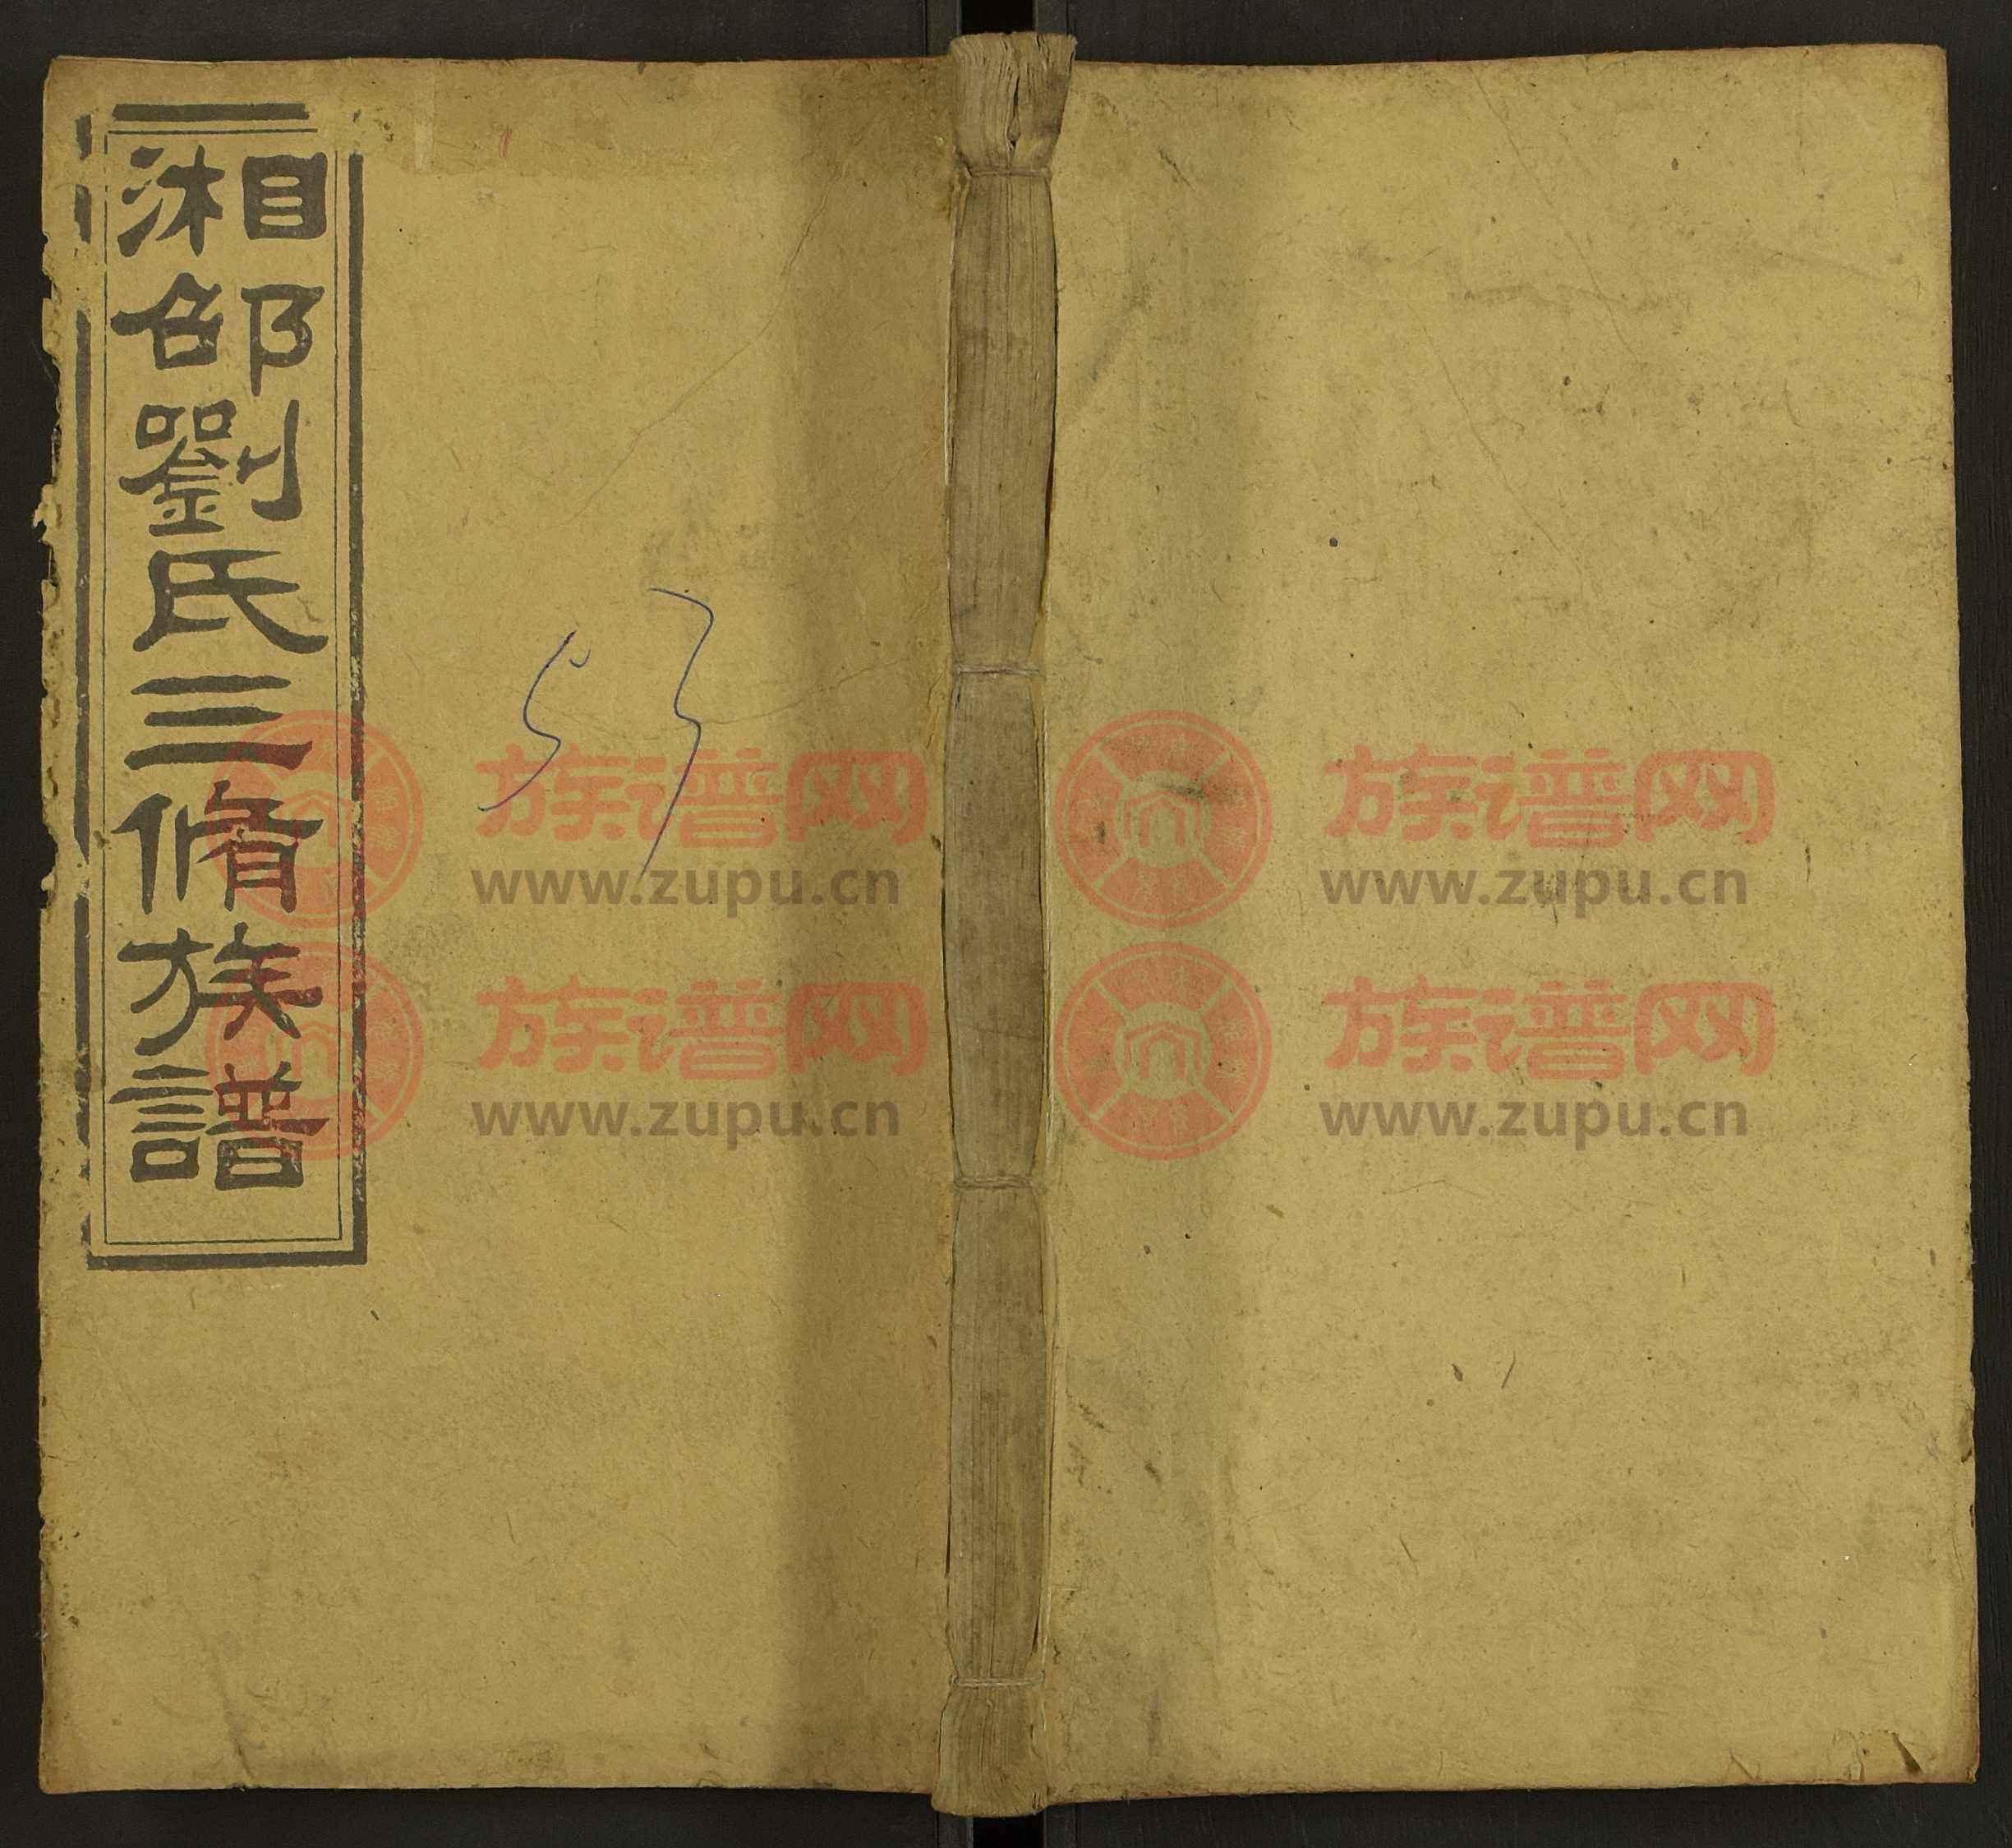 湘邵劉氏三脩族譜
53
族谱网
www.zupu.cn
族谱网
www.zupu.cn
族谱网
www.zupu.cn
族谱网
www.zupu.cn